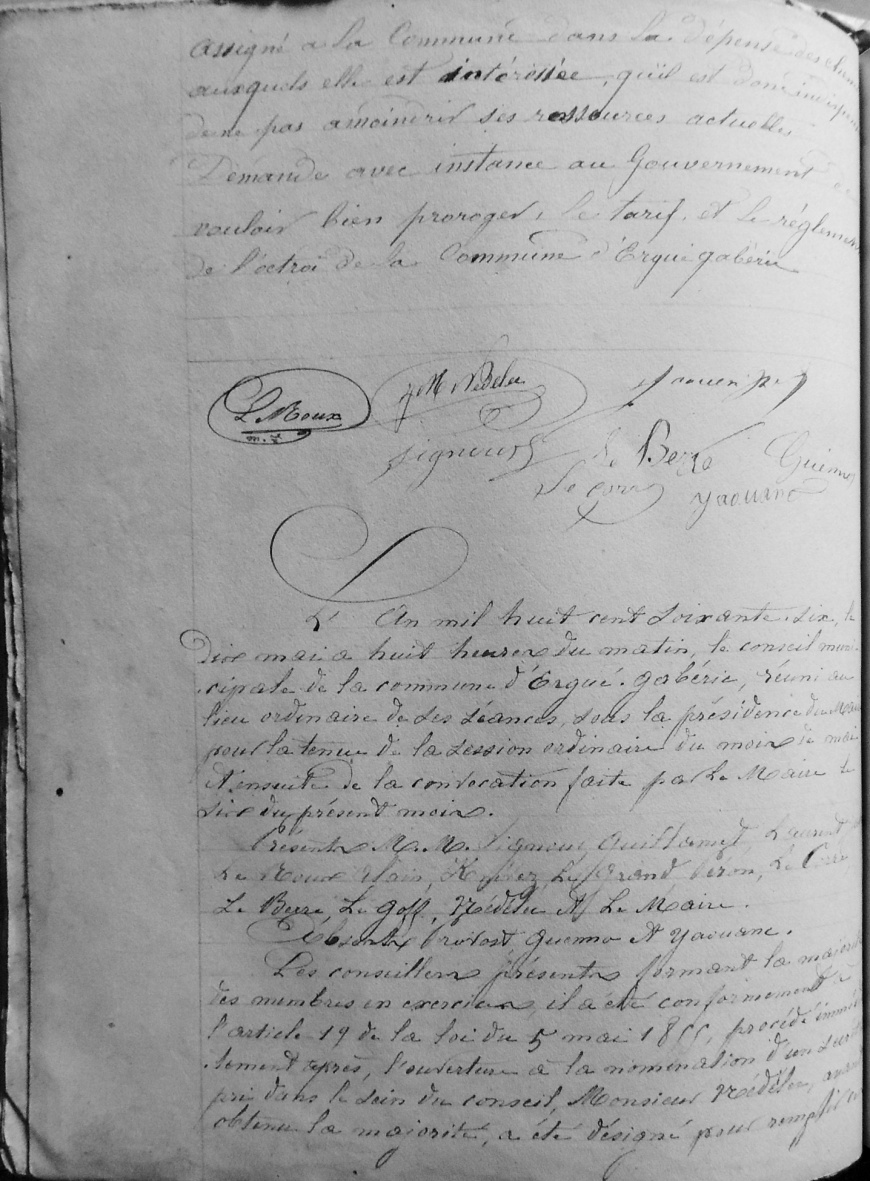 assigné a la Commune dans la dépense des
auxquels elle est intéréssée, qu'il est donc
de ne pas amoindrir ses ressources actuelles
Demande avec instance au Gouvernement de
vouloir bien proroger, le tarif, et le réglement
de l'octroi de la Commune d'Ergué gabéric
L Roux
J M Nédélec
Signour
Le Berre Guenno
Le Corre Yaouanc
L'An mil huit cent soixante six, le
dix mai a huit heures du matin, le conseil muni
cipale de la commune d'Ergué-gabéric, réuni au
lieu ordinaire de ses séances, sous la présidence du Maire
pour la tenue de la session ordinaire du mois de mai
et ensuite de la convocation faite par Le Maire le
six du présent mois.
Présents M. M. Signour, Guillamet, Laurent
Le Roux Alain, Le Grand Péron, Le Corre
Le Berre, Le Goff, Nédélec et Le Maire.
Absents Provost Guenno et Yaouanc.
Les conseillers présents formant la majorité
des membres en exercice, il a été conformement à
l'article 19 de la loi du 5 mai 1855, procédé immédia
tement après, l'ouverture a la nomination d'un
pris dans le sein du conseil, Monsieur Nédélec, ayant
obtenu la majorité, a été désigné pour remplir ces